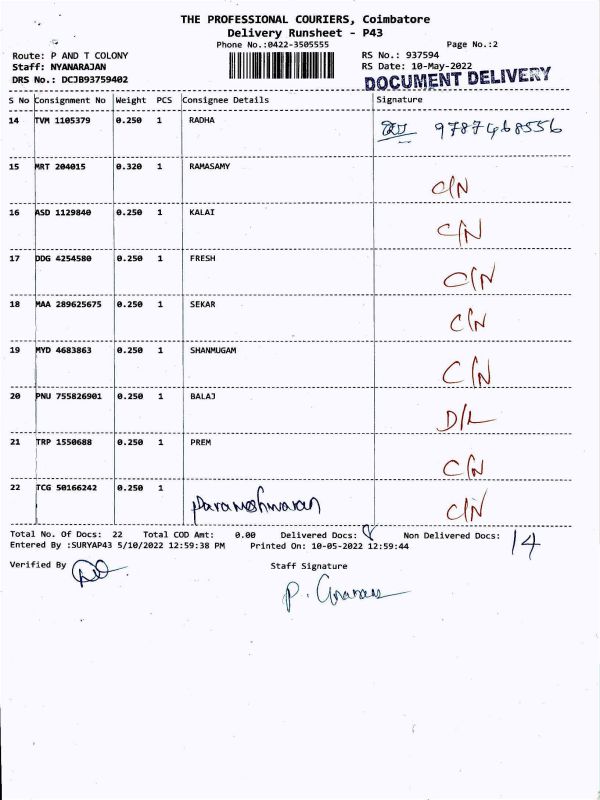 THE PROFESSIONAL COURIERS, Coimbatore
Delivery Runsheet - P43
Phone No.:0422-3505555 Page No.:2
Route: P AND T COLONY RS No.: 937594
Staff: NYANARAJAN RS Date: 10-May-2022
DRS No.: DCJB93759402 DOCUMENT DELIVERY
S No Consignment No Weight PCS Consignee Details Signature
14 TVM 1105379 0.250 1 RADHA 9787468556
15 MRT 204015 0.320 1 RAMASAMY C/N
16 ASD 1129840 0.250 1 KALAI C/N
17 DDG 4254580 0.250 1 FRESH C/N
18 MAA 289625675 0.250 1 SEKAR C/N
19 MYD 4683863 0.250 1 SHANMUGAM C/N
20 PNU 755826901 0.250 1 BALAJ D/L
21 TRP 1550688 0.250 1 PREM C/N
22 TCG 50166242 0.250 1 Parameshwaran C/N
Total No. Of Docs: 22 Total COD Amt: 0.00 Delivered Docs: 8 Non Delivered Docs: 14
Entered By :SURYAP43 5/10/2022 12:59:38 PM Printed On: 10-05-2022 12:59:44
Verified By Staff Signature